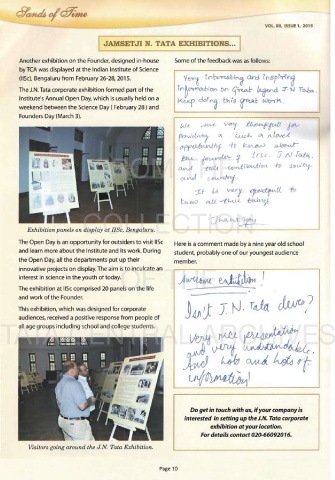 Sands of Time
VOL. XII, ISSUE 1, 2015
JAMSETJI N. TATA EXHIBITIONS...
Another exhibition on the Founder, designed in-house
by TCA was displayed at the Indian Institute of Science
(IISc), Bengaluru from February 26-28, 2015.
The J.N. Tata corporate exhibition formed part of the
Institute's Annual Open Day, which is usually held on a
weekend between the Science Day ( February 28 ) and
Founders Day (March 3).
Exhibition panels on display at IISc, Bengaluru.
The Open Day is an opportunity for outsiders to visit IISc
and learn more about the institute and its work. During
the Open Day, all the departments put up their
innovative projects on display. The aim is to inculcate an
interest in science in the youth of today.
The exhibition at IISc comprised 20 panels on the life
and work of the Founder.
This exhibition, which was designed for corporate
audiences, received a positive response from people of
all age groups including school and college students.
Visitors going around the J.N. Tata Exhibition.
Some of the feedback was as follows:
Very interesting and inspiring
information on Great legend J N Tata.
Keep doing this great work.
We are very thankful for
providing a such a novel
opportunity to know about
the founder of IISc. J.N.Tata.
and tata contribution to society
and country.
It is very greatfull to
know all these things
Thank you
Here is a comment made by a nine year old school
student, probably one of our youngest audience
member.
Awesome exhibition!
Isn't J.N. Tata clever?
Very nice presentation
and very understandable.
And lots and lots of
information!
Do get in touch with us, if your company is
interested in setting up the J.N. Tata corporate
exhibition at your location.
For details contact 020-66092016.
Page 10
TATA CENTRAL ARCHIVES